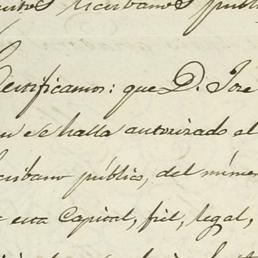 Escribanos públi
Certificamos: que D. Jose
se halla autorizado el
cribano público, del núme
esta Capital, fiel, legal,